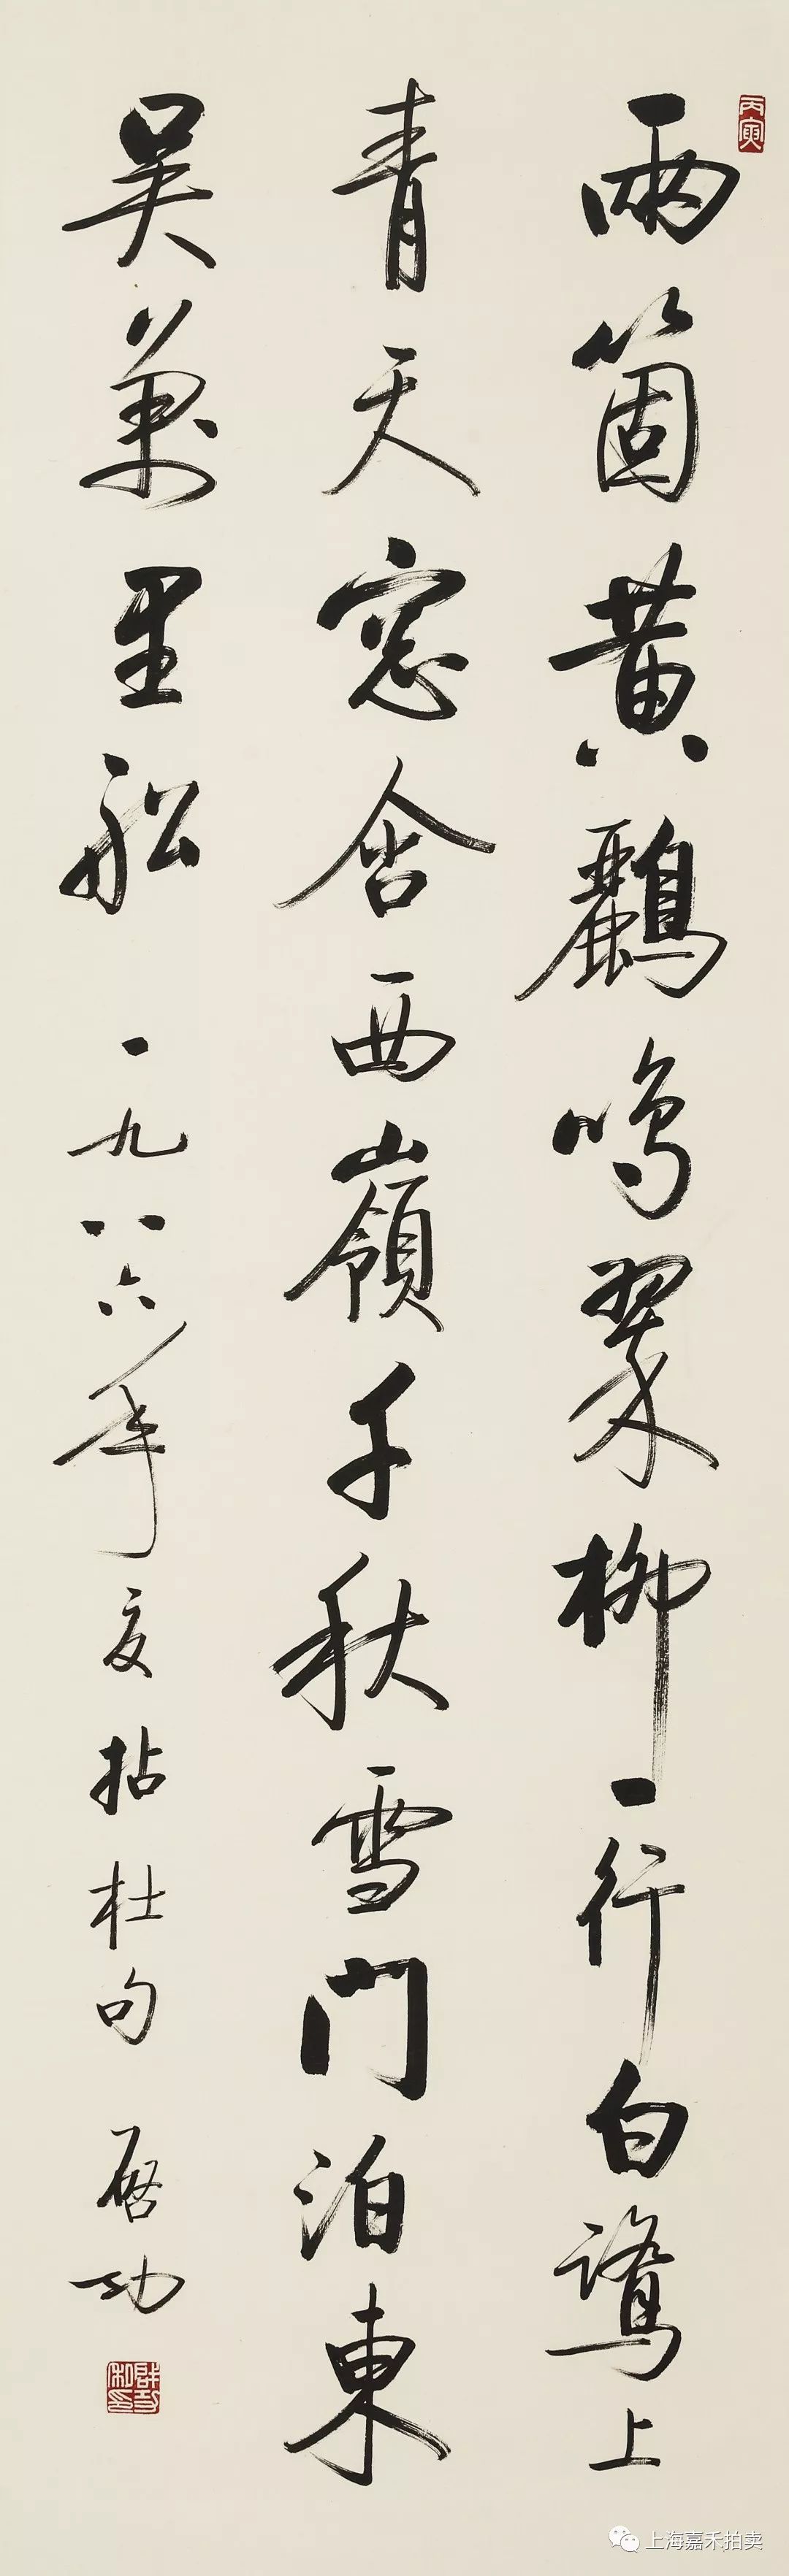 丙寅
兩箇黃鸝鳴翠柳一行白鷺上
青天窓含西嶺千秋雪門泊東
吴萬里船 一九八六年夏拈杜句 啓功
上海嘉禾拍卖